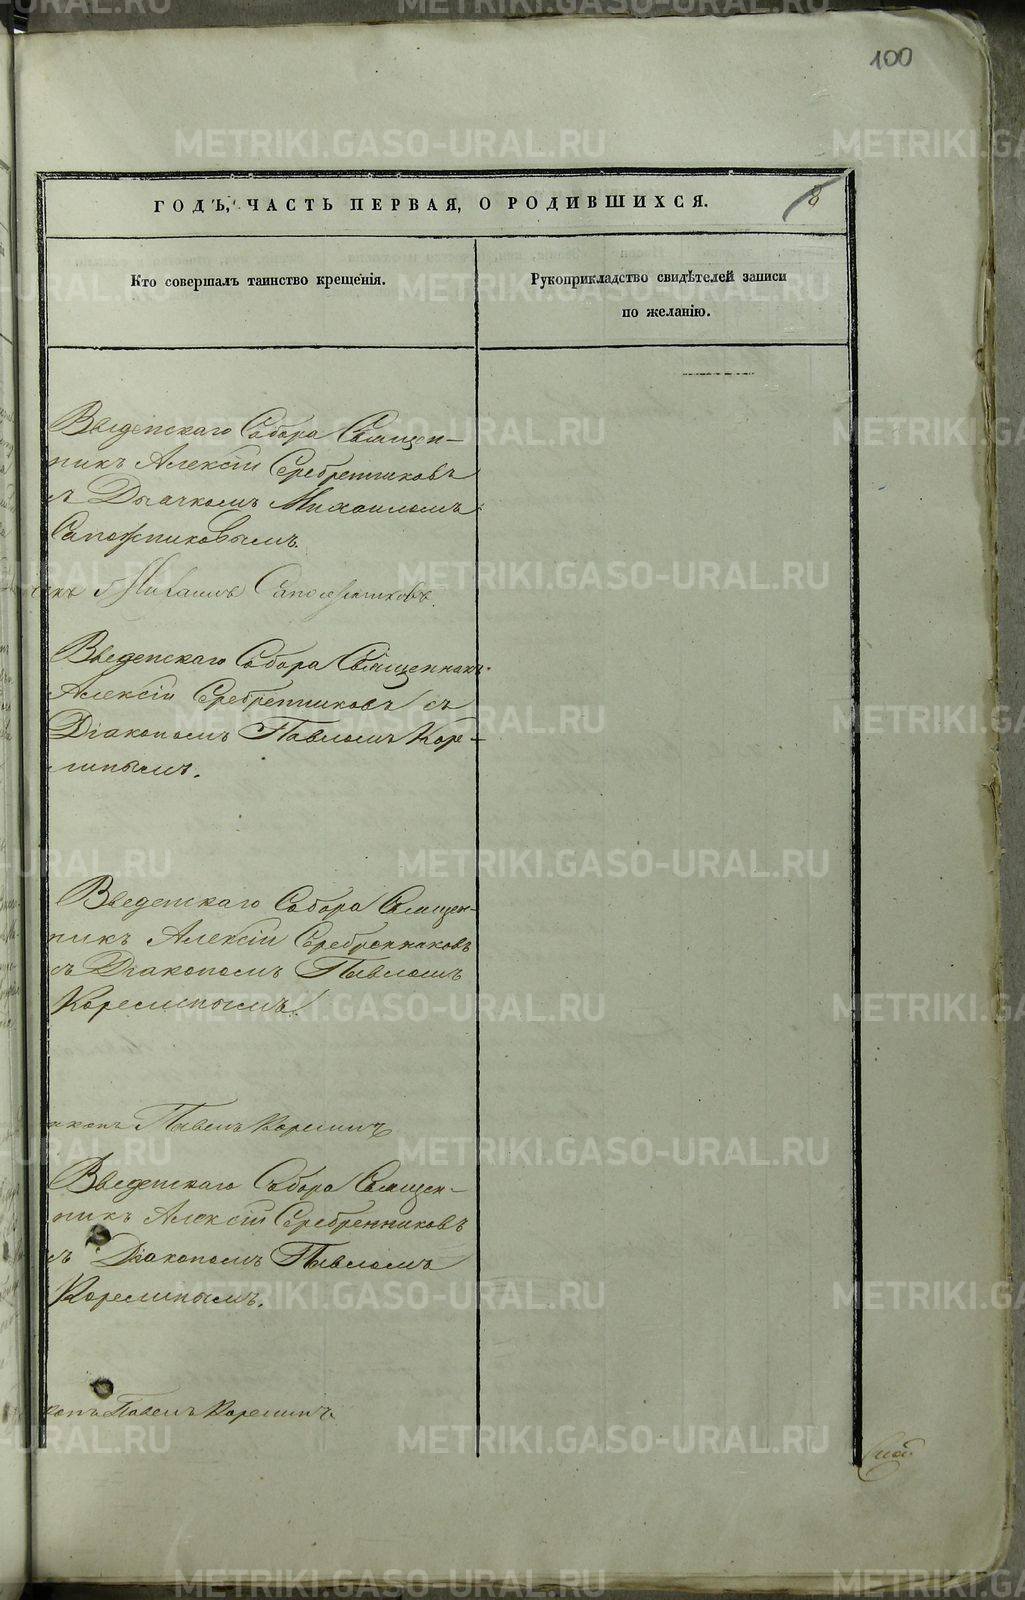 100
ГОДЪ, ЧАСТЬ ПЕРВАЯ, О РОДИВШИХСЯ.
8
Кто совершалъ таинство крещенія.
Рукоприкладство свидѣтелей записи
по желанію.
Введенскаго Собора Священ-
никъ Алексій Серебренниковъ
съ Дьячкомъ Михаиломъ
Сапожниковымъ.
Михаилъ Сапожниковъ.
Введенскаго Собора Священникъ
Алексій Серебренниковъ съ
Діакономъ Павломъ Коре-
линымъ.
Введенскаго Собора Священ-
никъ Алексій Серебренниковъ
съ Діакономъ Павломъ
Корелинымъ.
аконъ Павелъ Корелинъ
Введенскаго Собора Священ-
никъ Алексій Серебренниковъ
съ Діакономъ Павломъ
Корелинымъ.
конъ Павелъ Корелинъ.
METRIKI.GASO-URAL.RU